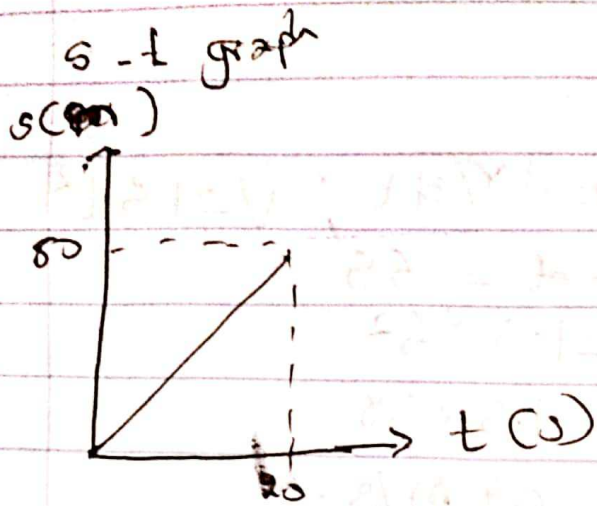 s-t graph
s(m)
80
t(s)
20